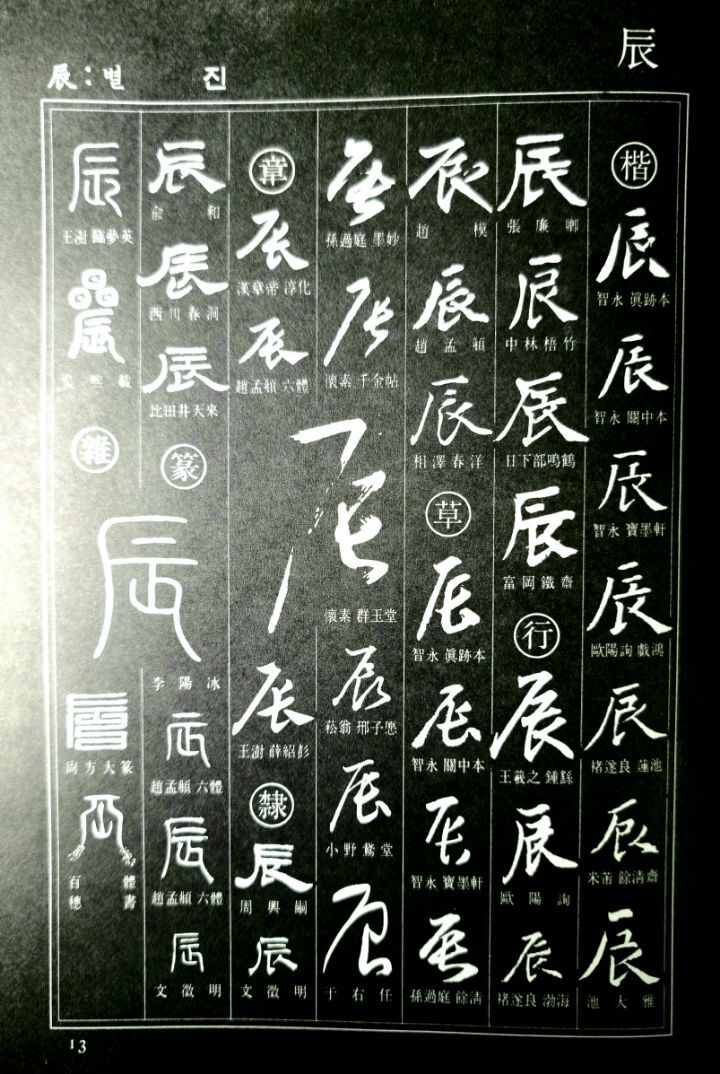 辰
辰：별 진
楷
辰
智永 眞跡本
辰
智永 關中本
辰
智永 寶墨軒
辰
歐陽詢 戲鴻
辰
褚遂良 蓮池
辰
米芾 餘淸齋
辰
池大雅
辰
張廉卿
辰
中林梧竹
辰
日下部鳴鶴
辰
富岡鐵齋
行
辰
王羲之 鍾繇
辰
歐陽詢
辰
褚遂良 渤海
辰
趙模
辰
趙孟頫
辰
相澤春洋
草
辰
智永 眞跡本
辰
智永 關中本
辰
智永 寶墨軒
辰
孫過庭 餘淸
辰
孫過庭 墨妙
辰
懷素 千金帖
辰
懷素 群玉堂
辰
菘翁 邢子愿
辰
小野鵞堂
辰
于右任
章
辰
漢章帝 淳化
辰
趙孟頫 六體
辰
王澍 薛紹彭
隸
辰
周興嗣
辰
文徵明
辰
兪和
辰
西川春洞
辰
比田井天來
篆
辰
李陽冰
辰
趙孟頫 六體
辰
趙孟頫 六體
辰
文徵明
辰
王澍臨夢英
辰
雜
辰
尙方大篆
辰
百體
穗書
13